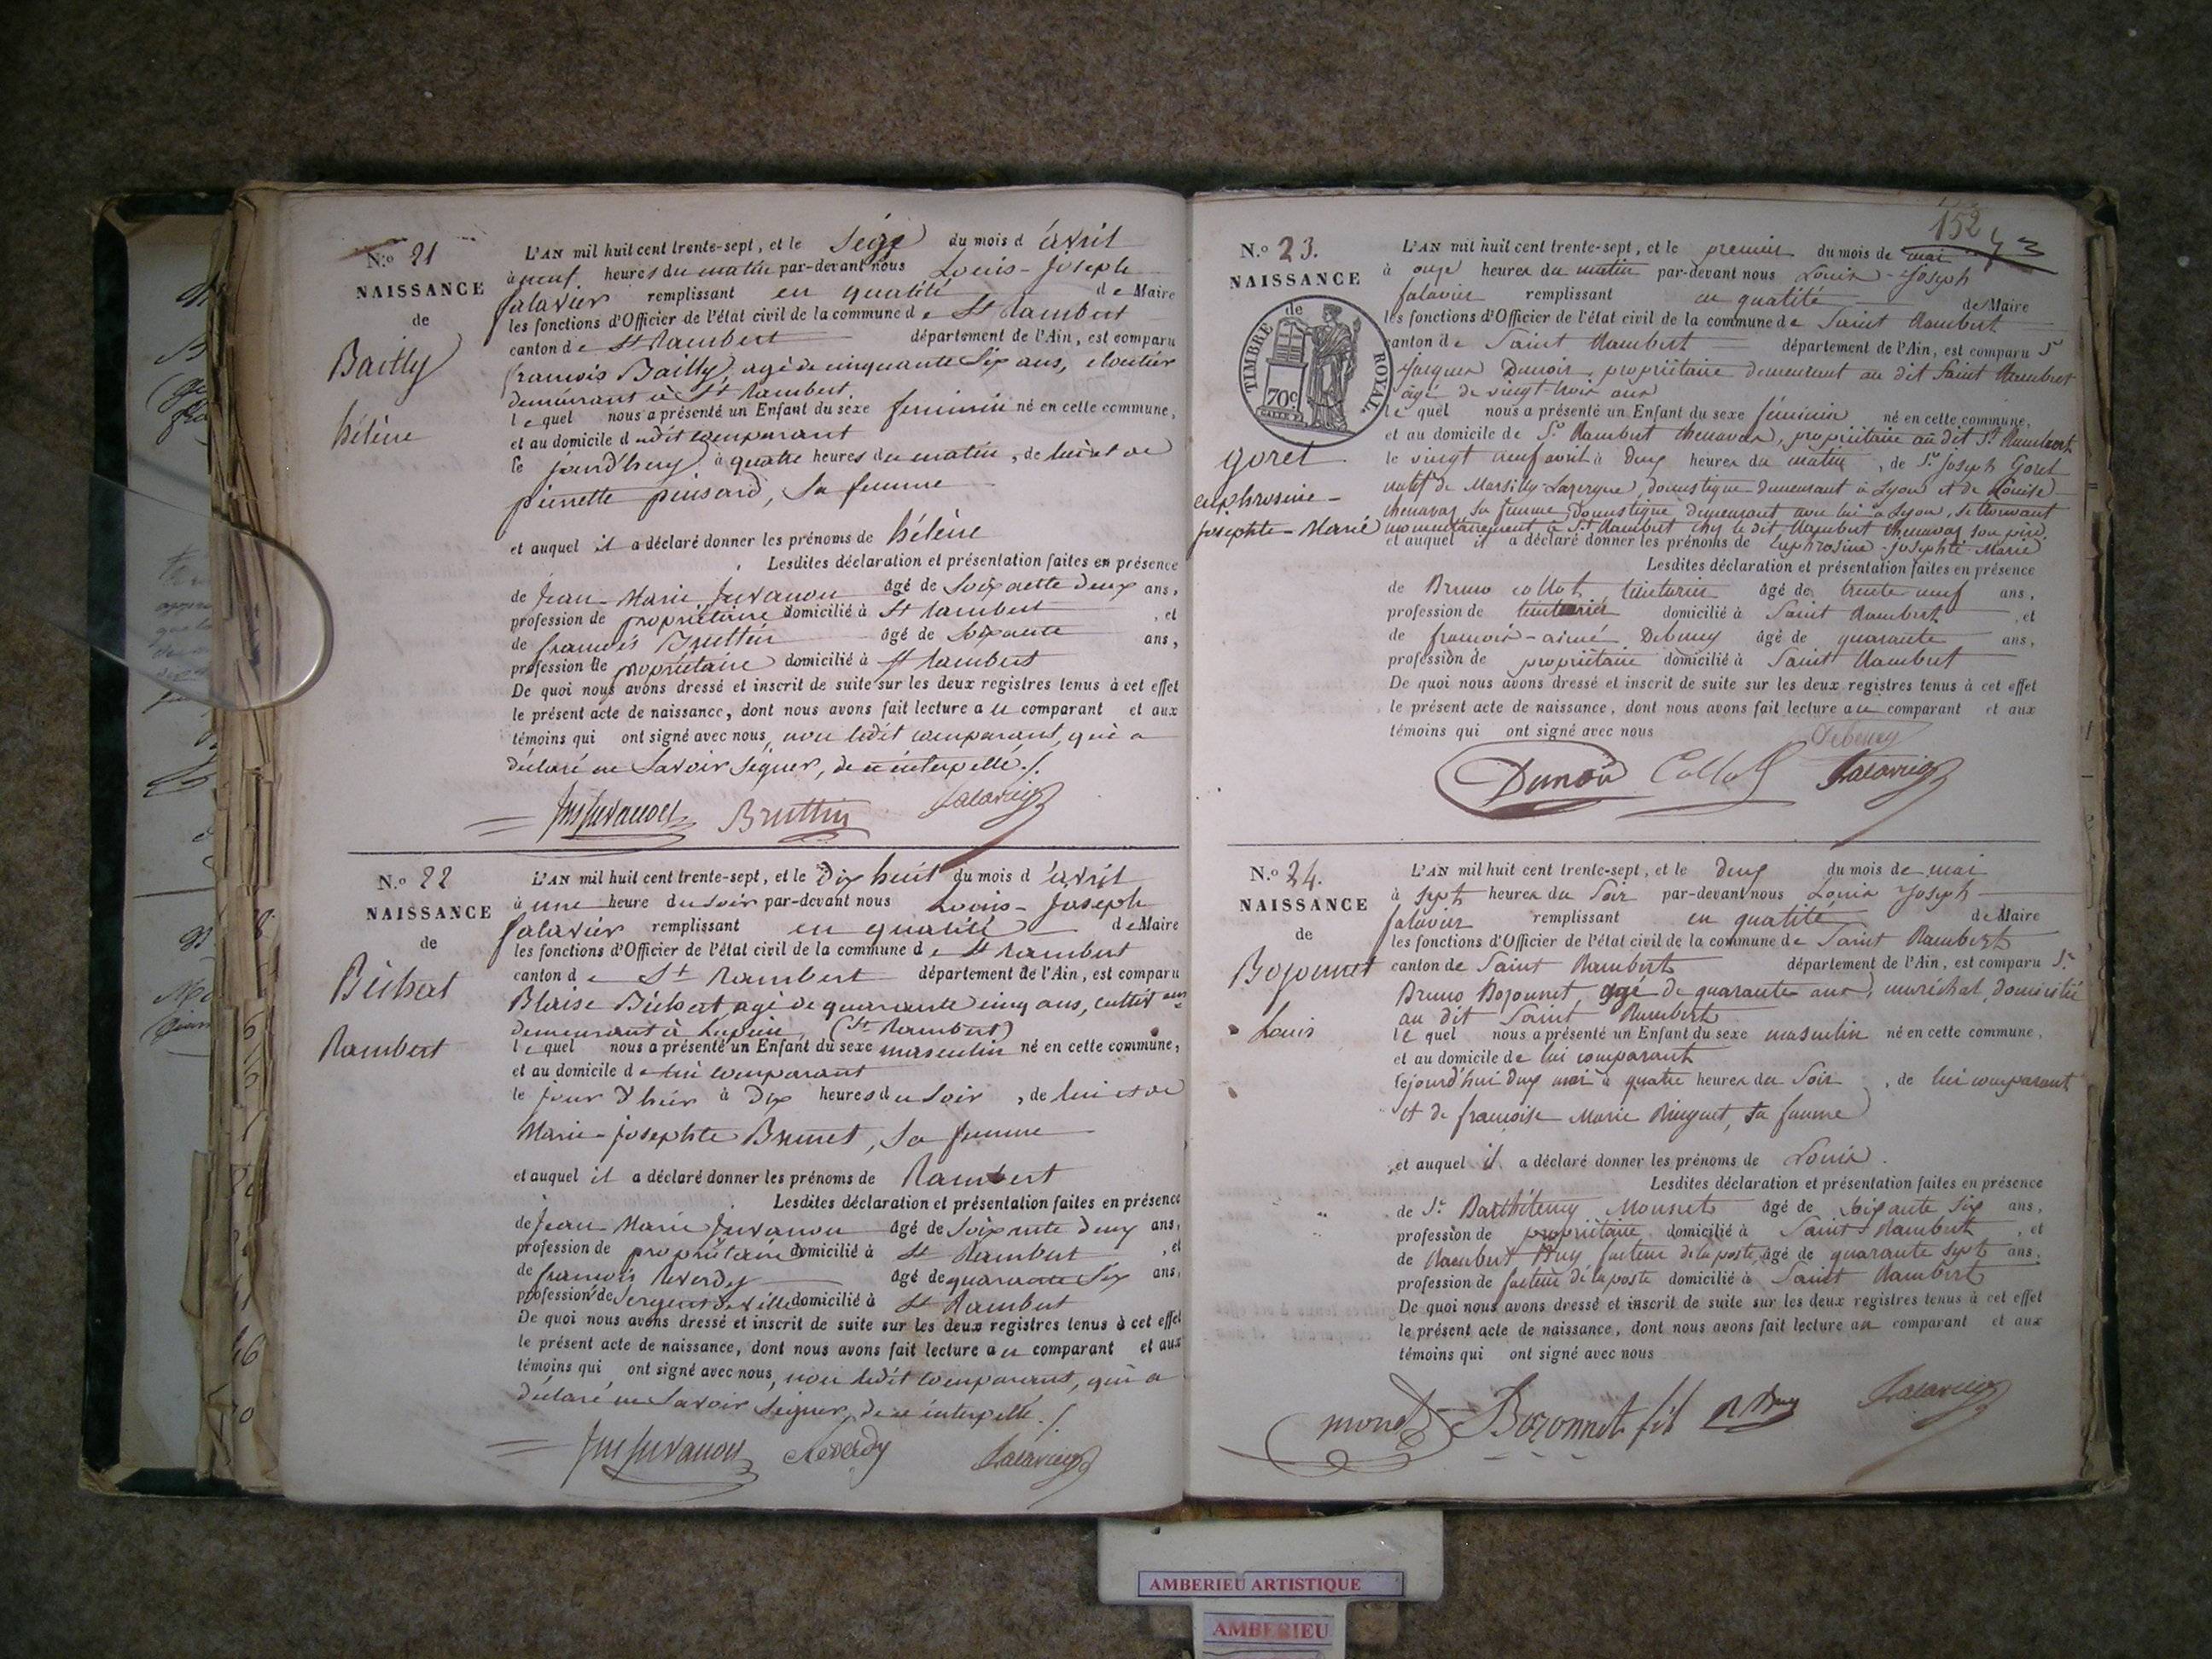 N.º 21
NAISSANCE
de
Bailly
hélène
L'AN mil huit cent trente-sept, et le Seize du mois d'avril
à neuf heures du matin par-devant nous Louis-Joseph
Salavier remplissant en qualité de Maire
les fonctions d'Officier de l'état civil de la commune de St Rambert
canton de St Rambert département de l'Ain, est comparu
françois Bailly, agé de cinquante Six ans, cloutier
demeurant à St Rambert.
lequel nous a présenté un Enfant du sexe feminin né en cette commune,
et au domicile dudit comparant
le jourd'huy à quatre heures du matin, de lui et de
pierrette pinsard, Sa femme
et auquel il a déclaré donner les prénoms de hélène
Lesdites déclaration et présentation faites en présence
de Jean-Marie Juvanon âgé de Soixante deux ans,
profession de propriétaire domicilié à St Rambert, et
de françois Bruttin âgé de Soixante ans,
profession de propriétaire domicilié à St Rambert
De quoi nous avons dressé et inscrit de suite sur les deux registres tenus à cet effet
le présent acte de naissance, dont nous avons fait lecture au comparant et aux
témoins qui ont signé avec nous, non ledit comparant, qui a
déclaré ne Savoir Signer, de ce interpellé./.
Juvanon Bruttin Salavier
N.º 22
NAISSANCE
de
Bichat
Rambert
L'AN mil huit cent trente-sept, et le Dix huit du mois d'avril
à une heure du soir par-devant nous Louis-Joseph
Salavier remplissant en qualité de Maire
les fonctions d'Officier de l'état civil de la commune de St Rambert
canton de St Rambert département de l'Ain, est comparu
Blaise Bichat, agé de quarante cinq ans, cultivateur
demeurant à (St Rambert)
lequel nous a présenté un Enfant du sexe masculin né en cette commune,
et au domicile de lui comparant
le jour d'hier à Dix heures du Soir, de lui et de
Marie-Josephte Brunet, Sa femme
et auquel il a déclaré donner les prénoms de Rambert
Lesdites déclaration et présentation faites en présence
de Jean Marie Juvanon âgé de Soixante deux ans,
profession de propriétaire domicilié à St Rambert, et
de françois Reverdy âgé de quarante Six ans,
profession de Sergent de Ville domicilié à St Rambert
De quoi nous avons dressé et inscrit de suite sur les deux registres tenus à cet effet
le présent acte de naissance, dont nous avons fait lecture au comparant et aux
témoins qui ont signé avec nous, non ledit comparant, qui a
déclaré ne Savoir Signer, de ce interpellé./.
Juvanon Reverdy Salavier
152
N.º 23.
NAISSANCE
de
TIMBRE ROYAL
70c
goret
euphrosine-
josephte-Marie
L'AN mil huit cent trente-sept, et le premier du mois de mai
à onze heures du matin par-devant nous Louis-Joseph
Salavier remplissant en qualité de Maire
les fonctions d'Officier de l'état civil de la commune de Saint Rambert
canton de Saint Rambert département de l'Ain, est comparu Sr
Jacques Dunoir, propriétaire demeurant au dit Saint Rambert
âgé de vingt trois ans
lequel nous a présenté un Enfant du sexe féminin né en cette commune,
et au domicile de Sr Rambert chenavas, propriétaire au dit St Rambert
le vingt neuf avril à Deux heures du matin, de Sr Joseph Goret
natif de domestique demeurant à Lyon et de Louise
chenavas Sa femme, Domestique demeurant avec lui à Lyon, se trouvant
momentanément à St Rambert chez le dit Rambert chenavas son père
et auquel il a déclaré donner les prénoms de euphrosine-josephte Marie
Lesdites déclaration et présentation faites en présence
de Bruno collot, teinturier âgé de trente neuf ans,
profession de teinturier domicilié à Saint Rambert, et
de françois-aimé Debeney âgé de quarante ans,
profession de propriétaire domicilié à Saint Rambert
De quoi nous avons dressé et inscrit de suite sur les deux registres tenus à cet effet
le présent acte de naissance, dont nous avons fait lecture au comparant et aux
témoins qui ont signé avec nous
Debeney
Dunoir Collot Salavier
N.º 24.
NAISSANCE
de
Bozonnet
Louis
L'AN mil huit cent trente-sept, et le deux du mois de mai
à sept heures du Soir par-devant nous Louis Joseph
Salavier remplissant en qualité de Maire
les fonctions d'Officier de l'état civil de la commune de Saint Rambert
canton de Saint Rambert département de l'Ain, est comparu Sr
Bruno Bozonnet, agé de quarante ans, maréchal, domicilié
au dit Saint Rambert
lequel nous a présenté un Enfant du sexe masculin né en cette commune,
et au domicile de lui comparant
lejourd'hui deux mai à quatre heures du Soir, de lui comparant
et de françoise Marie Ringuet, Sa femme
et auquel il a déclaré donner les prénoms de Louis.
Lesdites déclaration et présentation faites en présence
de Sr Barthélemy Monnet âgé de Soixante Six ans,
profession de propriétaire domicilié à Saint Rambert, et
de Rambert facteur de la poste, âgé de quarante sept ans,
profession de facteur de la poste domicilié à Saint Rambert
De quoi nous avons dressé et inscrit de suite sur les deux registres tenus à cet effet
le présent acte de naissance, dont nous avons fait lecture au comparant et aux
témoins qui ont signé avec nous
monet Bozonnet fils Salavier
AMBERIEU ARTISTIQUE
AMBERIEU